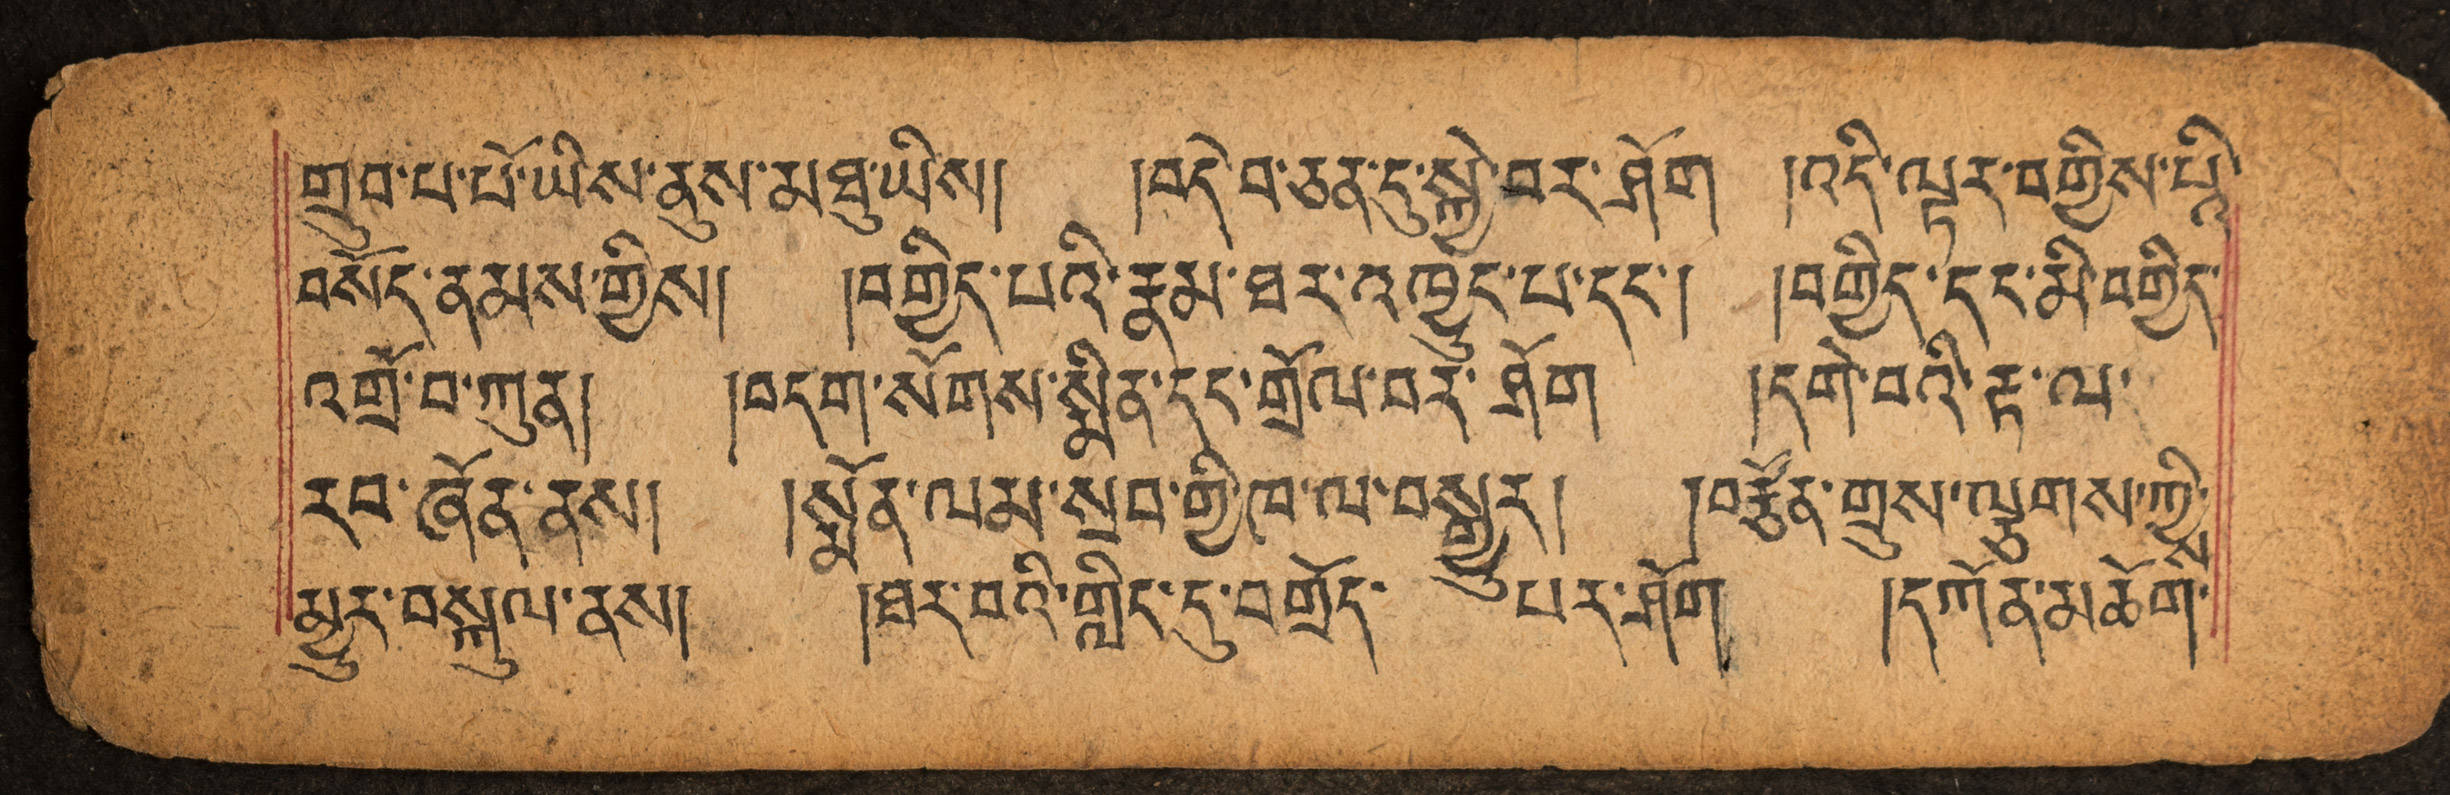 གྲུབ་པ་པོ་ཡིས་ནུས་མཐུ་ཡིས། །བདེ་བ་ཅན་དུ་སྐྱེ་བར་ཤོག །འདི་ལྟར་བགྱིས་པའི་
བསོད་ནམས་ཀྱིས། །བགྱིད་པའི་རྣམ་ཐར་འཁྱོང་པ་དང་། །བགྱིད་དང་མི་བགྱིད་
འགྲོ་བ་ཀུན། །བདག་སོགས་སྨིན་དང་གྲོལ་བར་ཤོག །དགེ་བའི་རྟ་ལ་
རབ་ཞོན་ནས། །སྨོན་ལམ་སྲབ་ཀྱི་ཁ་ལ་བསྒྱུར། །བརྩོན་གྲུས་ལྕགས་ཀྱིས་
མྱུར་བསྐུལ་ནས། །ཐར་བའི་གླིང་དུ་བགྲོད་པར་ཤོག །དཀོན་མཆོག་